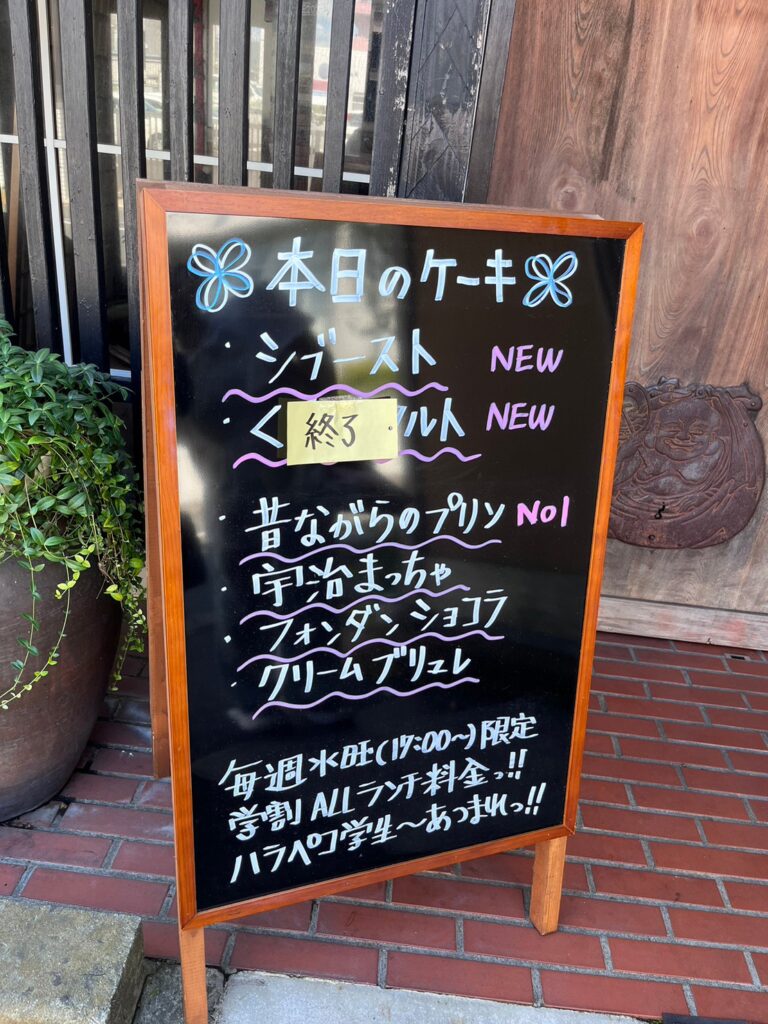 本日のケーキ
・シブースト NEW
・く 終了 タルト NEW
・昔ながらのプリン No1
・宇治まっちゃ
・フォンダンショコラ
・クリームブリュレ
毎週水旺(17:00〜)限定
学割 ALLランチ料金っ!!
ハラペコ学生〜あつまれっ!!